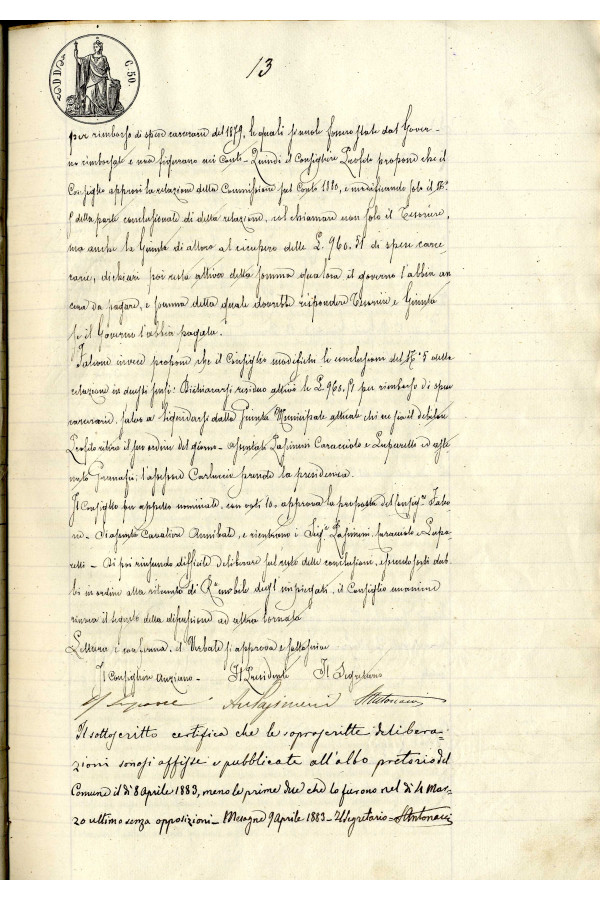 DD
C. 50.
13
per rimborso di spese carcerarie del 1879, le quali sianole furono state dal Gover-
no rimborsate e non figurano nei Conti - Quindi il Consigliere Profilo propone che il
Consiglio approvi la relazione della Commissione sul Conto 1880, e modificando solo il N.º
5 della parte conclusionale di della relazione, col chiamare non solo il Tesoriere,
ma anche la Giunta di allora al ricupero delle L. 960.51 di spese carce-
rarie, dichiari poi resta attiva della somma qualora il governo l'abbia an
cora da pagare, e somma della quale dovrebbe rispondere Tesoriere e Giunta
se il Governo l'abbia pagata.
Falcone invece propone che il Consiglio modifichi le conclusioni del N.º 5 della
relazione in questi sensi: Dichiararsi residuo attivo le L. 960.51 per rimborso di spese
carcerarie, salvo a liquidarsi dalla Giunta Municipale attuale chi ne sia il debitore
Profilo ritira il suo ordine del giorno - assentati Caracciolo e Luparelli ed
Granafei; l'assessore Carluccio prende la presidenza.
Il Consiglio per appello nominale, con voti 10, approva la proposta del Consigr. Falco-
ne - Si assenta Cavaliere Annibale, e rientrano i Sigi. Caracciolo e Lupa-
relli - Di poi riuscendo difficile deliberare sul resto delle conclusioni, essendo sorti dub-
bi in ordine alla ritenuta di Ra. mobile degli impiegati, il Consiglio unanime
rinvia il seguito della discussione ad altra tornata
Lettura e conferma, il Verbale si approva e sottoscrive
Il Consigliere Anziano - Il Presidente Il Segretario
SAntonacci
Il sottoscritto certifica che le soprascritte delibera-
zioni sonosi affisse e pubblicate all'albo pretorio del
Comune il dì 8 Aprile 1883, meno le prime due che lo furono nel dì 4 Mar-
zo ultimo senza opposizioni - Mesagne 9 Aprile 1883 - Il Segretario - SAntonacci